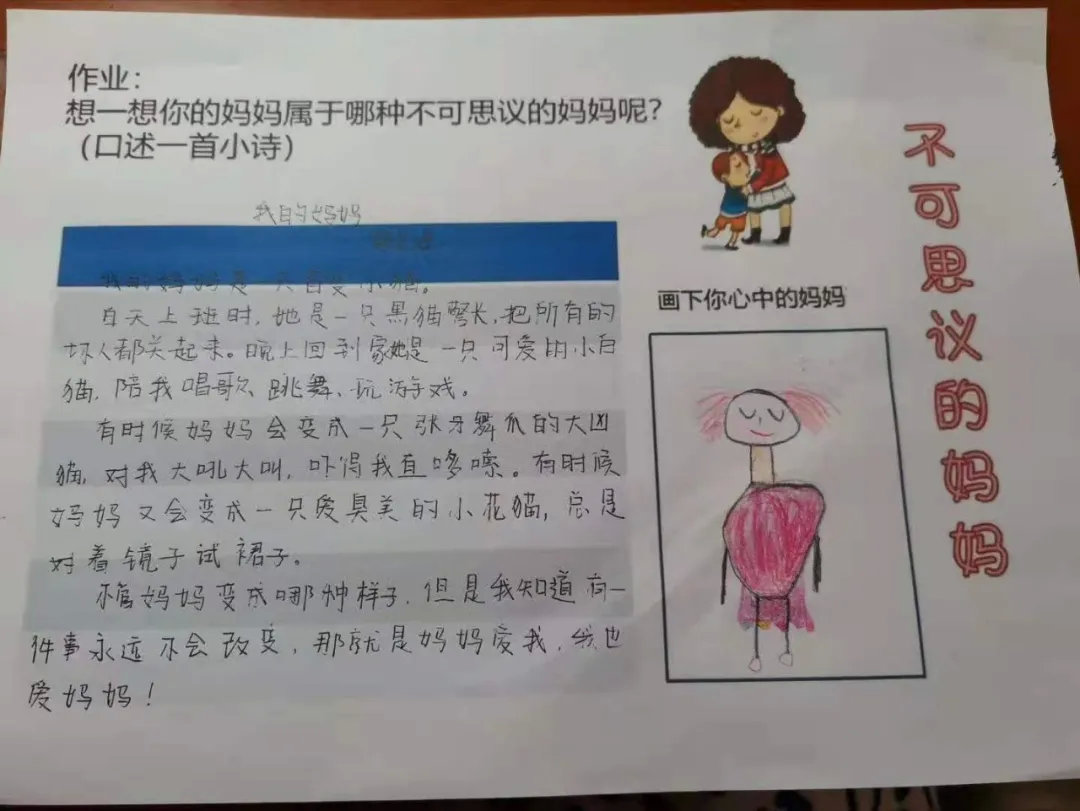 作业：
想一想你的妈妈属于哪种不可思议的妈妈呢？
（口述一首小诗）
我的妈妈
我的妈妈是一只百变小猫。
白天上班时，她是一只黑猫警长，把所有的
坏人都关起来。晚上回到家她是一只可爱的小白
猫，陪我唱歌、跳舞、玩游戏。
有时候妈妈会变成一只张牙舞爪的大凶
猫，对我大吼大叫，吓得我直哆嗦。有时候
妈妈又会变成一只爱臭美的小花猫，总是
对着镜子试裙子。
不管妈妈变成哪种样子，但是我知道有一
件事永远不会改变，那就是妈妈爱我，我也
爱妈妈！
画下你心中的妈妈
不可思议的妈妈